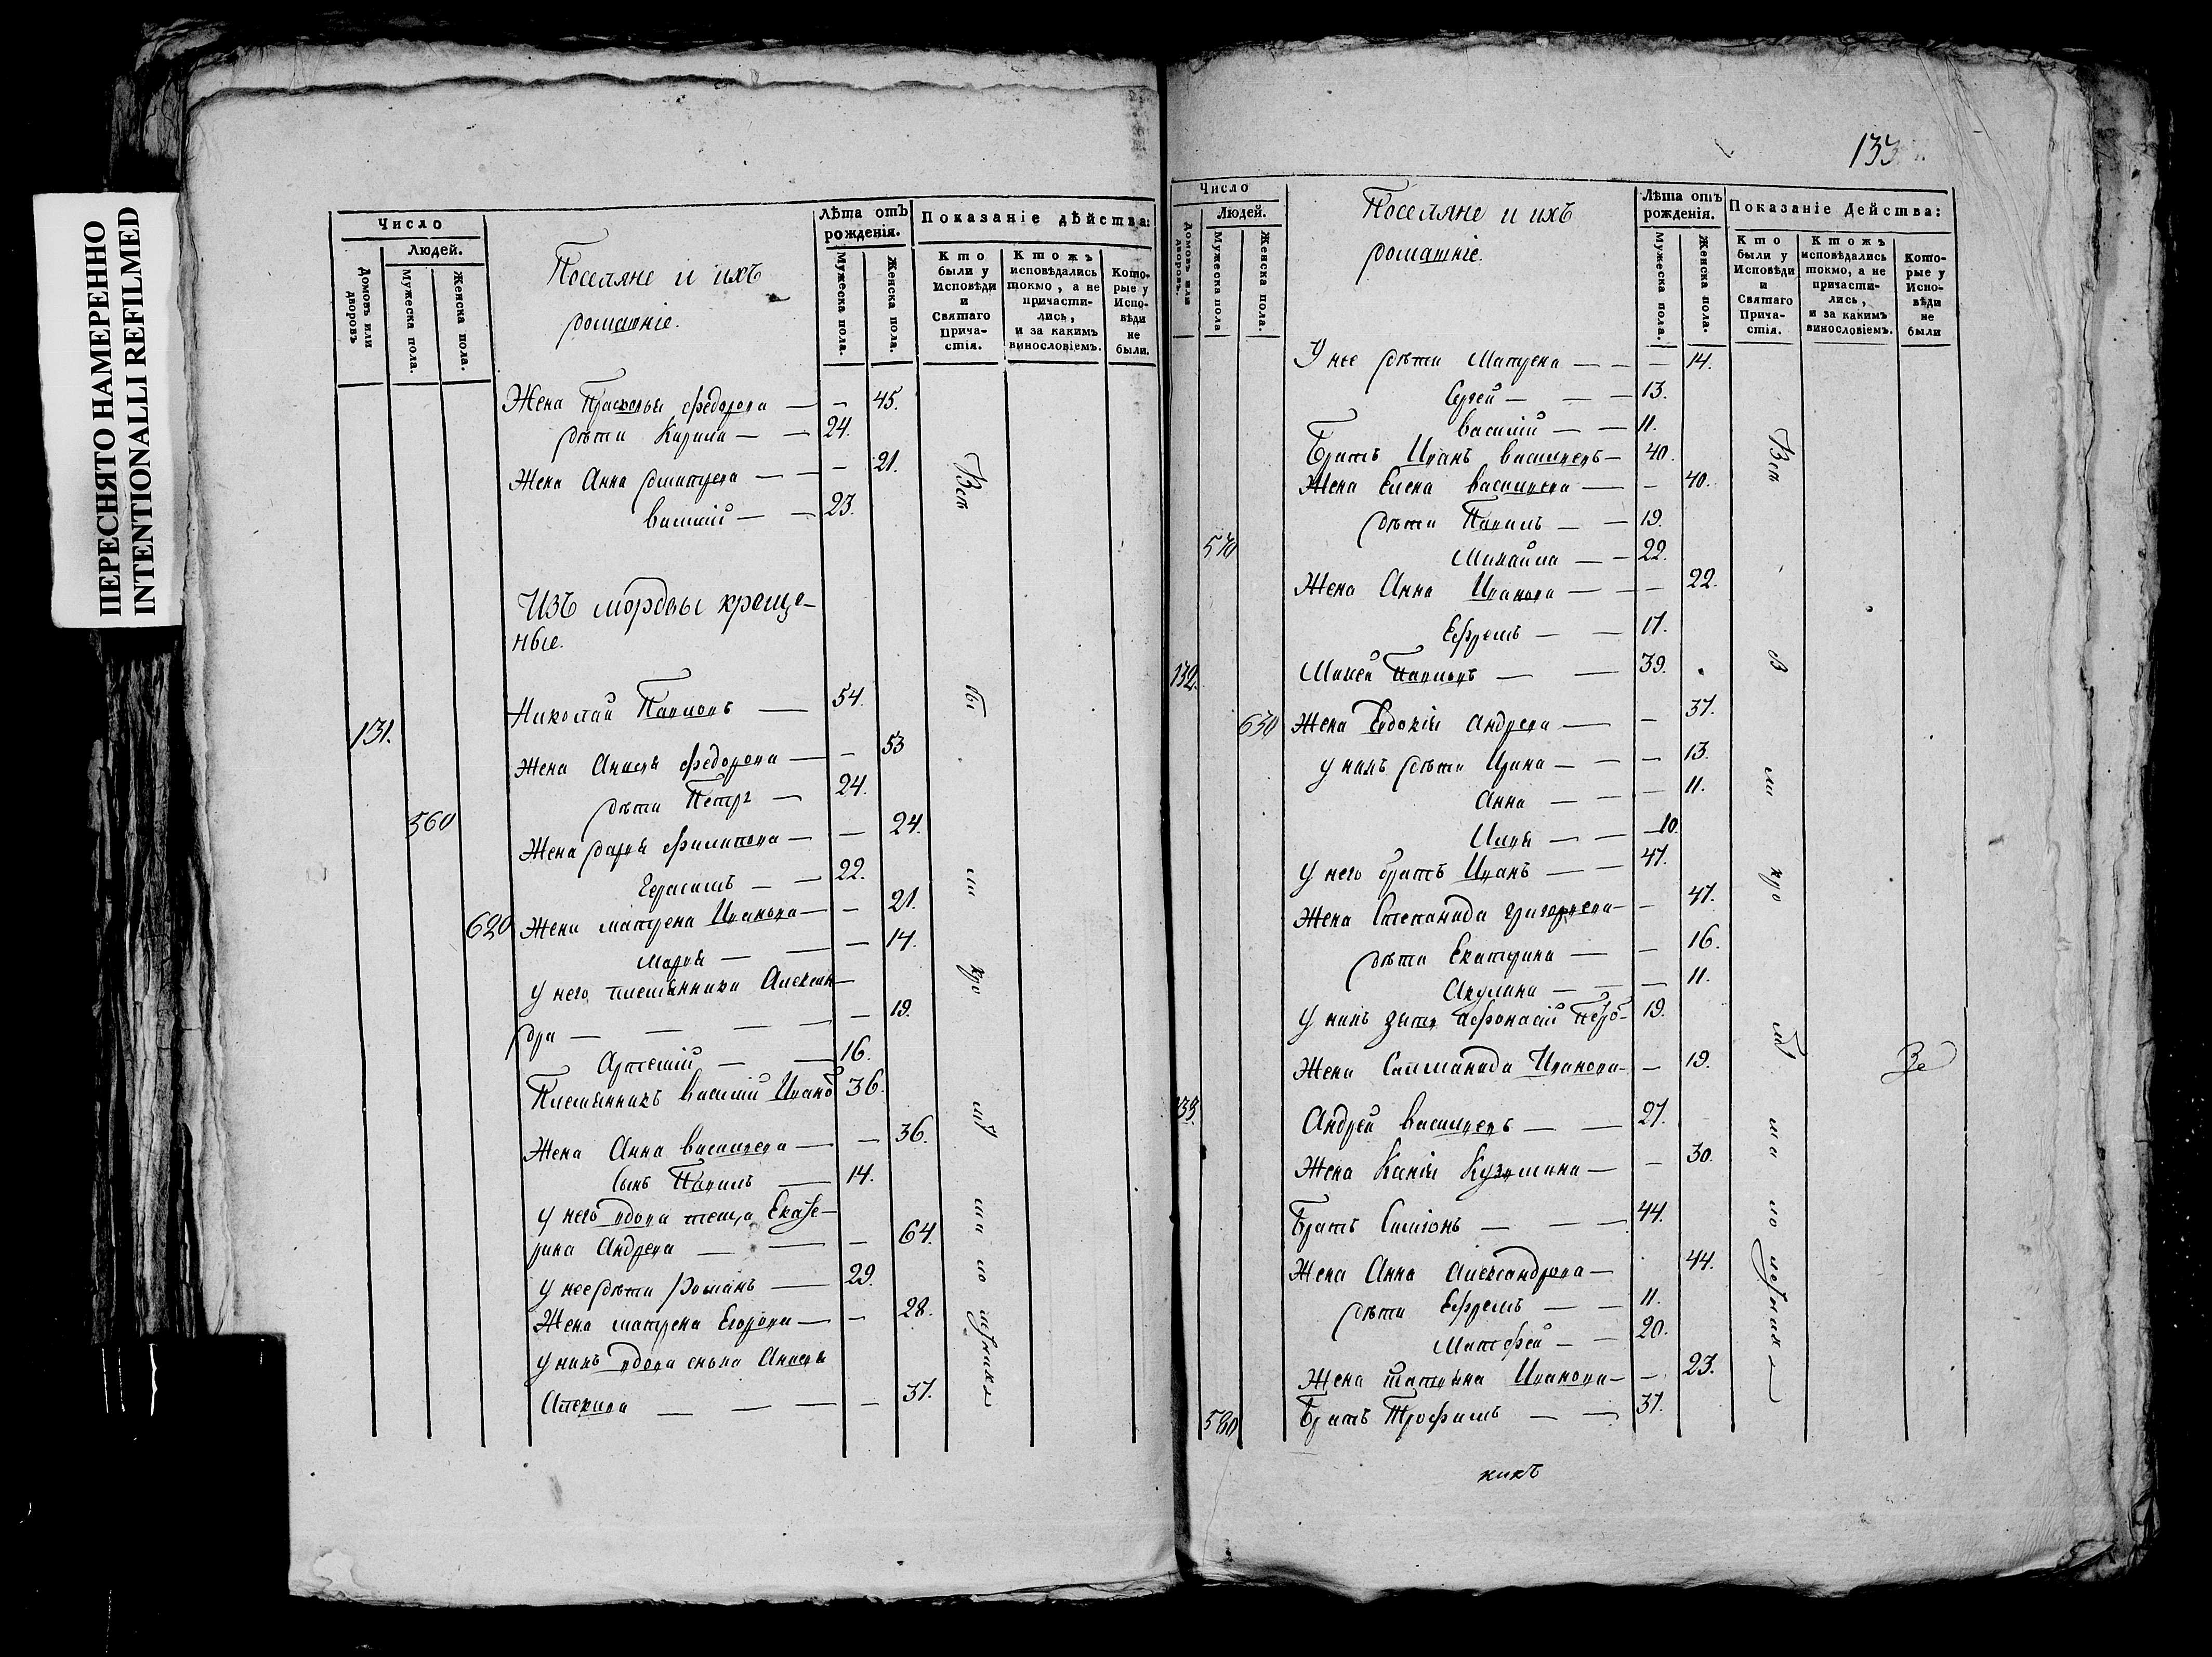 ПЕРЕСНЯТО НАМЕРЕННО
INTENTIONALLI REFILMED
Число
Людей.
Домовъ или дворовъ
Мужеска пола.
Женска пола.
Поселяне и ихъ
домашніе.
Лѣта отъ рожденія.
Мужеска пола.
Женска пола.
Показаніе дѣйства:
Кто были у Исповѣди и Святаго Прича-стія.
Ктожъ исповѣдались токмо, а не причасти-лись, и за какимъ винословіемъ.
Кото-рые у Испо-вѣди не были.
Жена Прасковья Федорова — — 45.
дѣти Кирила — — 24.
Жена Анна Дмитрева — — — 21.
Василій — — 23.
Изъ мордвы креще-
ные.
131. Николай Павловъ — 54.
Жена Анисья Федорова — — 53
560 дѣти Петръ — 24.
Жена Дарья Филипова — — 24.
Герасимъ — — 22.
620 Жена Матрена Иванова — — 21.
Марья — — — 14.
У него племянники Алексан-
дра — — — — — 19.
Артемій — — 16.
Племянникъ Василій Иванов 36.
Жена Анна Васильева — — 36.
сынъ Павилъ — 14.
У него вдова теща Екате-
рина Андрева — — — 64.
У нее дѣти Романъ — 29.
Жена Матрена Егорова — — 28.
У нихъ вдова сноха Анисья
— — — — 37.
Всѣ
бы
ли
кро
мѣ
ма
ло
лѣтнихъ
133
Число
Людей.
Домовъ или дворовъ.
Мужеска пола
Женска пола.
Поселяне и ихъ
домашніе.
Лѣта отъ рожденія.
Мужеска пола.
Женска пола.
Показаніе Действа:
Кто были у Исповѣди и Святаго Прича-стія.
Ктожъ исповѣдались токмо, а не причасти-лись, и за какимъ винословіемъ.
Кото-рые у Испо-вѣди не были
У нее дѣти Матрена — — — 14.
Сергей — — — 13.
Василій — — 11.
Братъ Иванъ Васильевъ — 40.
Жена Елена Васильева — — 40.
дѣти Павилъ — — 19.
570 Михайла — — 22.
Жена Анна Иванова — — — 22.
Ефремъ — — 17.
132. Павловъ — — 39.
630 Жена Евдокія Андрева — — 37.
У нихъ дѣти Ирина — — — 13.
Анна — — — 11.
Илья — — — 10.
У него братъ Иванъ — — 47.
Жена Степанида Григорьева — — 47.
дѣти Екатерина — — 16.
Акулина — — — 11.
У нихъ зять Афонасій Петро- 19.
Жена Иванова — — 19.
133. Андрей Васильевъ — — 27.
Жена Ксенія Кузмина — — 30.
Братъ Симіонъ — — — 44.
Жена Анна Александрова — 44.
дѣти Ефремъ — — 11.
Матфей — — 20.
Жена Иванова — — 23.
580 Братъ Трофимъ — — 37.
Всѣ
б
ли
кро
мѣ
ма
ло
лѣтнихъ